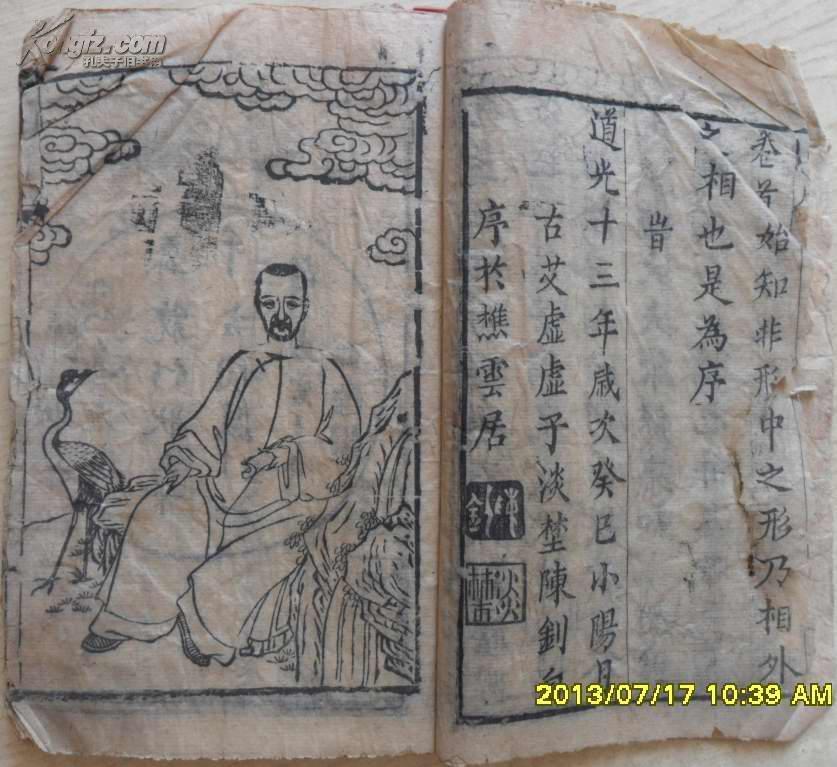 Kongfz.com
孔夫子旧书网
卷首始知非形中之形乃相外
之相也是為序
旹
道光十三年歲次癸巳小陽月
古艾虛虛子淡埜陳釗自
序於樵雲居
陳釗
淡埜
2013/07/17 10:39 AM